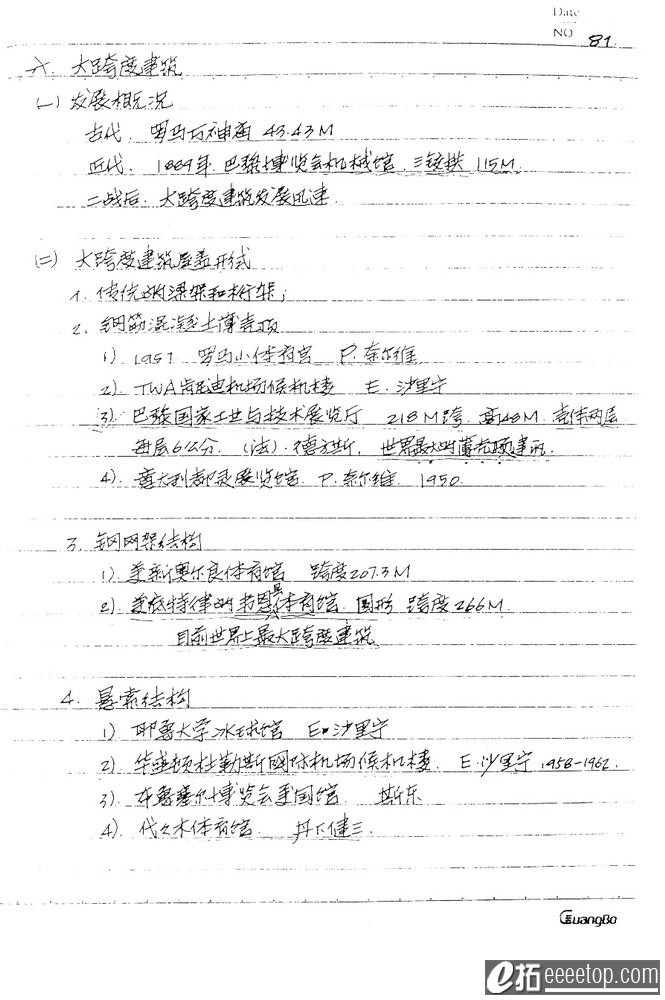 Date
NO 81
六、大跨度建筑
(一) 发展概况
古代、罗马万神庙 43.43M
近代、1889年 巴黎博览会机械馆、三铰拱 115M
二战后、大跨度建筑发展迅速.
(二) 大跨度建筑屋盖形式
1. 传统的梁架和桁架;
2. 钢筋混凝土薄壳顶
1) 1957 罗马小体育宫 P.奈尔维
2) TWA肯尼迪机场候机楼 E.沙里宁
3) 巴黎国家工业与技术展览厅 218M跨、高48M、壳体两层
每层6公分、(法)、 世界最大的薄壳顶建筑.
4) 意大利都灵展览馆 P.奈尔维 1950
3. 钢网架结构
1) 美新奥尔良体育馆 跨度207.3M
2) 美底特律的韦恩县体育馆 圆形 跨度266M
目前世界上最大跨度建筑
4. 悬索结构
1) 耶鲁大学冰球馆 E.沙里宁
2) 华盛顿杜勒斯国际机场候机楼 E.沙里宁 1958-1962.
3) 布鲁塞尔博览会美国馆 斯东
4) 代々木体育馆 丹下健三
GuangBo
e拓 eeeetop.com